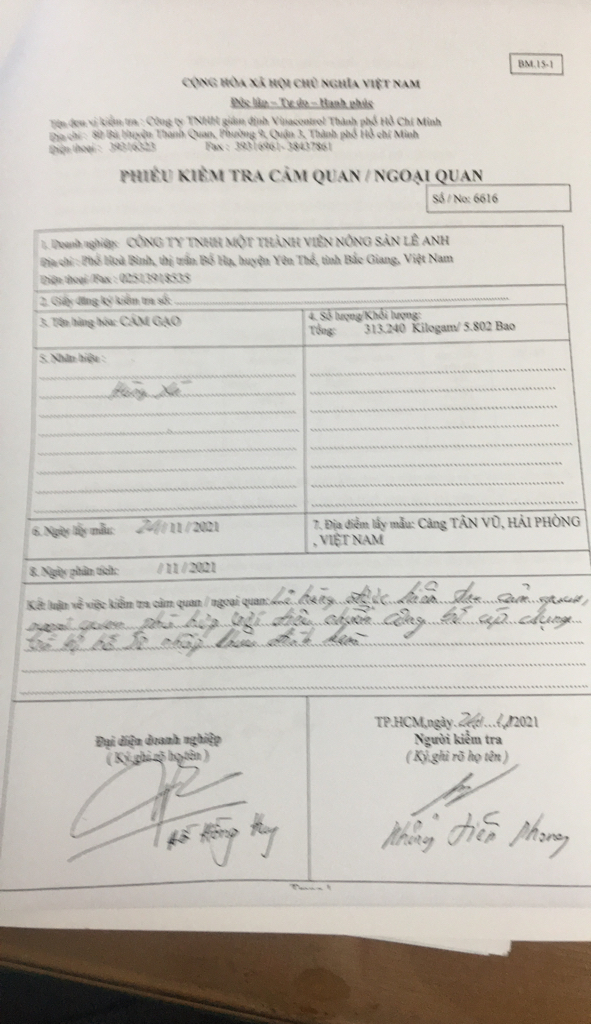 BM.15-1
CỘNG HÒA XÃ HỘI CHỦ NGHĨA VIỆT NAM
Độc lập – Tự do – Hạnh phúc
Tên đơn vị kiểm tra : Công ty TNHH giám định Vinacontrol Thành phố Hồ Chí Minh
Địa chỉ : Bà Huyện Thanh Quan, Phường 9, Quận 3, Thành phố Hồ chí Minh
Điện thoại : 39316323 Fax : 39316961- 38437861
PHIẾU KIỂM TRA CẢM QUAN / NGOẠI QUAN
Số / No: 6616
1. Doanh nghiệp: CÔNG TY TNHH MỘT THÀNH VIÊN NÔNG SẢN LÊ ANH
Địa chỉ : Phố Hoà Bình, thị trấn Bố Hạ, huyện Yên Thế, tỉnh Bắc Giang, Việt Nam
Điện thoại/Fax : 02513918535
2. Giấy đăng ký kiểm tra số:
3. Tên hàng hóa: CÁM GẠO
4. Số lượng/Khối lượng:
Tổng: 313.240 Kilogam/ 5.802 Bao
5. Nhãn hiệu :
Hàng xá
6. Ngày lấy mẫu: /11/2021
7. Địa điểm lấy mẫu: Cảng TÂN VŨ, HẢI PHÒNG
, VIỆT NAM
8. Ngày phân tích: /11/2021
Kết luận về việc kiểm tra cảm quan / ngoại quan: Lô hàng được đánh cảm quan,
ngoại quan phù hợp với tiêu chuẩn công bố áp dụng
hồ sơ nhập khẩu đính kèm
TP.HCM,ngày 2021
Đại diện doanh nghiệp
( Ký,ghi rõ họ tên )
Người kiểm tra
( Ký,ghi rõ họ tên )
Hồng Huy
Phùng Tiến Phong